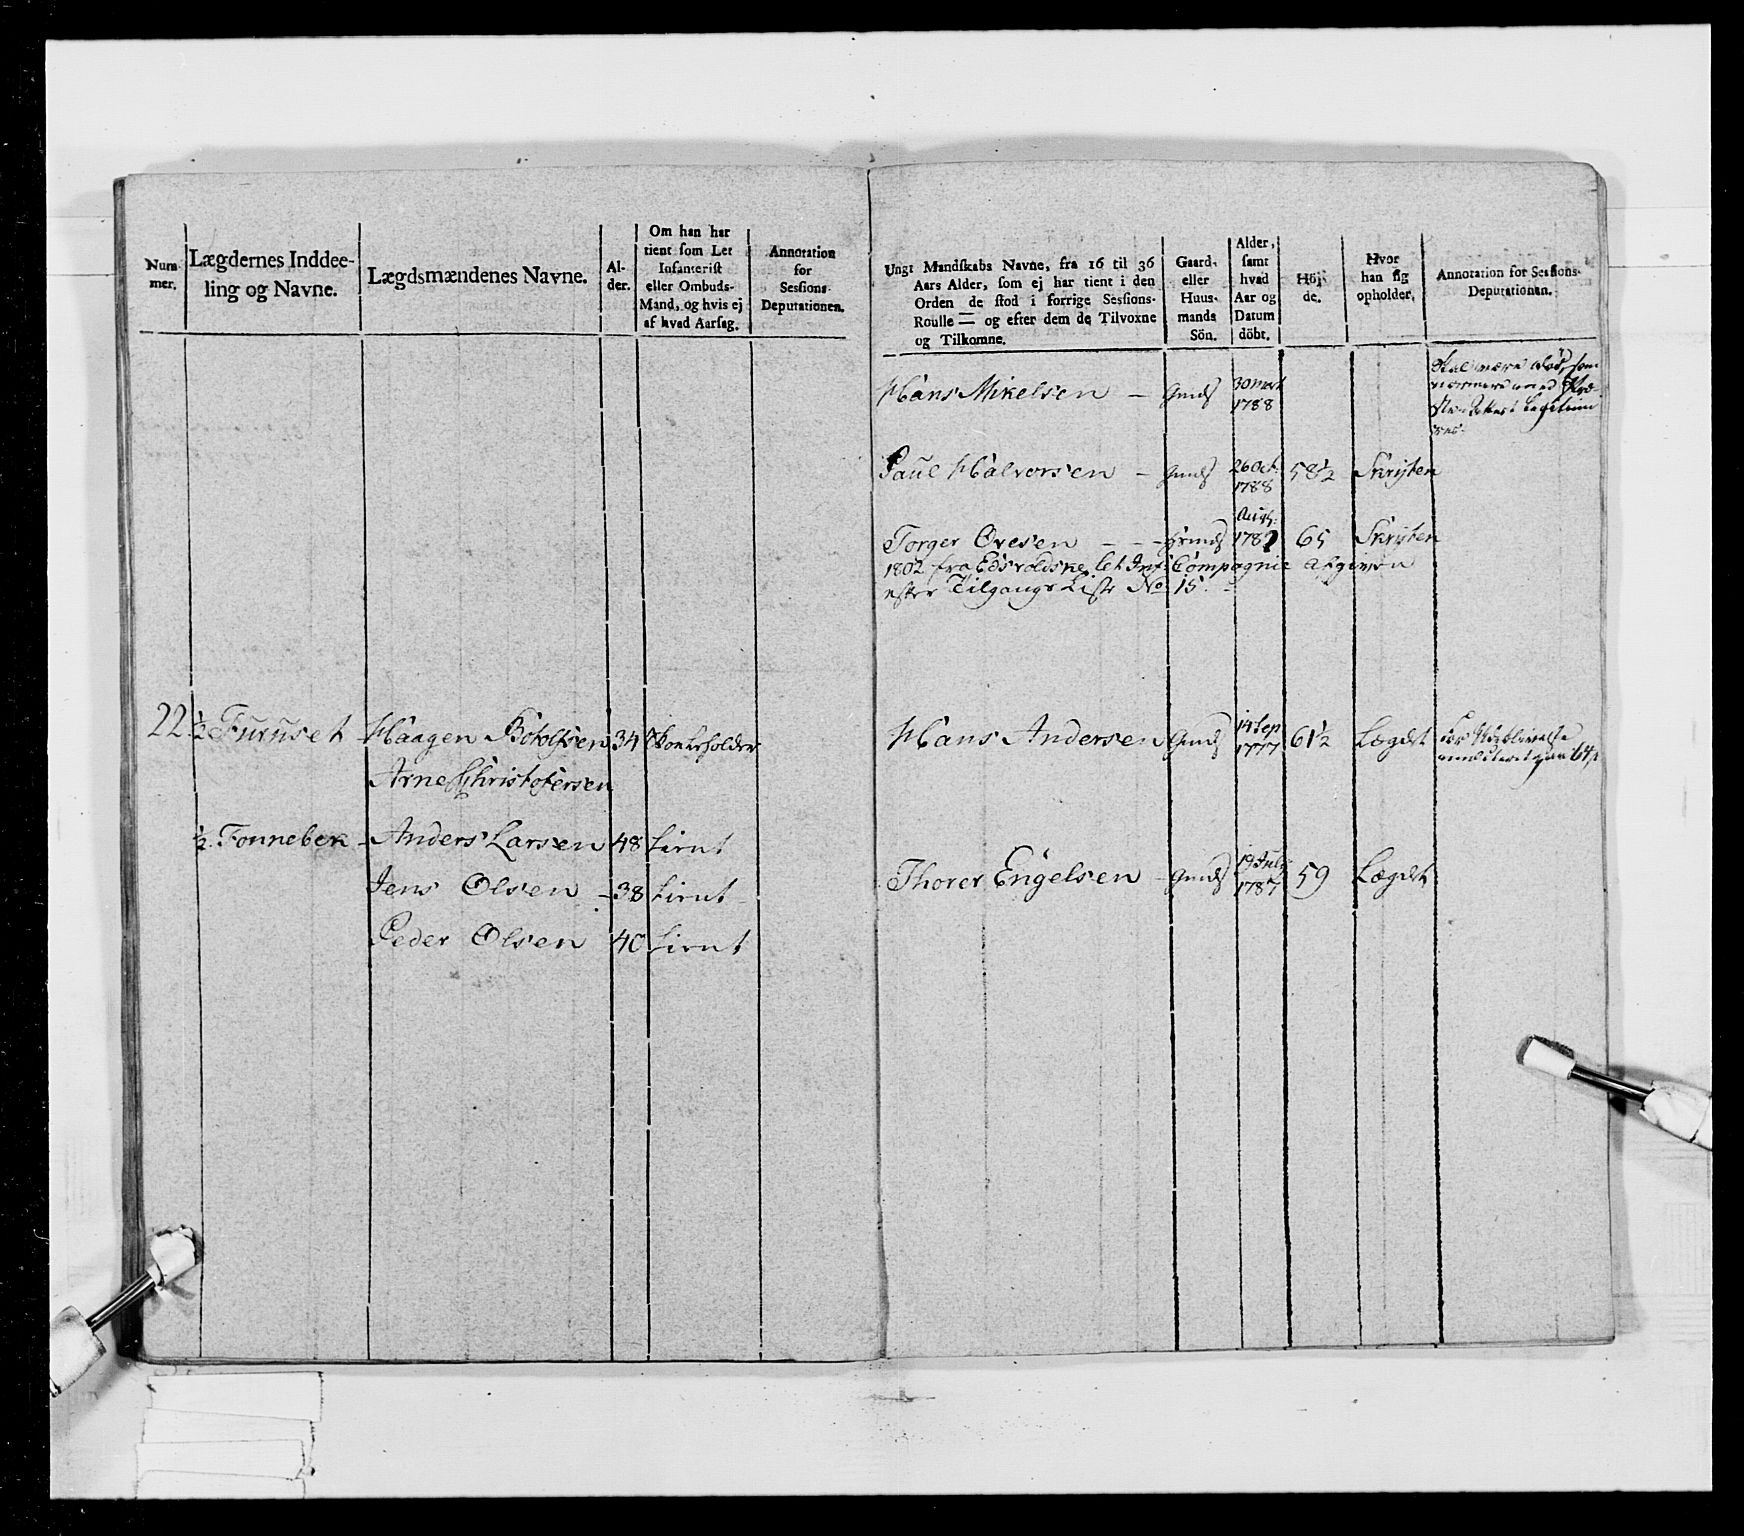 Num-
mer.
Lægdernes Inddee-
ling og Navne.
Lægdsmændenes Navne.
Al-
der.
Om han har
tient som Let
Infanterist
eller Ombuds-
Mand, og hvis ej
af hvad Aarsag.
Annotation
for
Sessions-
Deputationen.
22 ½ Furuset Haagen Botolfsen 34
Arne Christofersen
½ Fonnebek - Anders Larsen 48 tient
Jens Olsen - 38 tient
Peder Olsen 40 tient
Ungt Mandskabs Navne, fra 16 til 36
Aars Alder, som ej har tient i den
Orden de stod i forrige Sessions-
Roulle — og efter dem de Tilvoxne
og Tilkomne.
Gaard-
eller
Huus-
mands
Sön.
Alder,
samt
hvad
Aar og
Datum
döbt.
Höj-
de.
Hvor
han sig
opholder.
Annotation for Sessions-
Deputationen.
Hans Mikelsen - Gmds 30 Mart
1788
Skal være død, som
Paul Halvorsen - Gmds 26 Oct: 58½
1788
Torger Ovesen - - - Aug: 65
1802 fra Edsvoldske let Inf: Compagnie afgiven
efter Tilgangs Liste No 15.
Hans Andersen Gmds 14 Sep 61½ Lægdet
1777
Thorer Engelsen - Gmds 19 July 59 Lægdet
1787